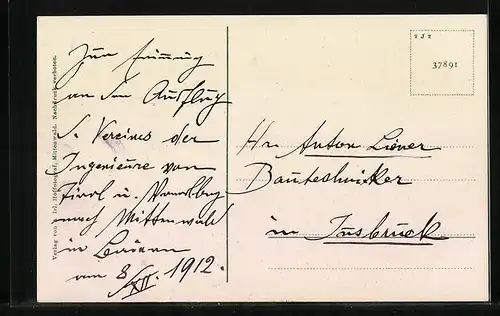 Zur Erinnerung
an den Ausflug
d. Vereines der
Ingenieure von
Tirol u. Vorarlbg
nach Mittenwald
in Baiern
am 8/XII. 1912.
Hr Anton
Bautechniker
in Insbruck
37891
Verlag von Mittenwald. Nachdruck verboten.